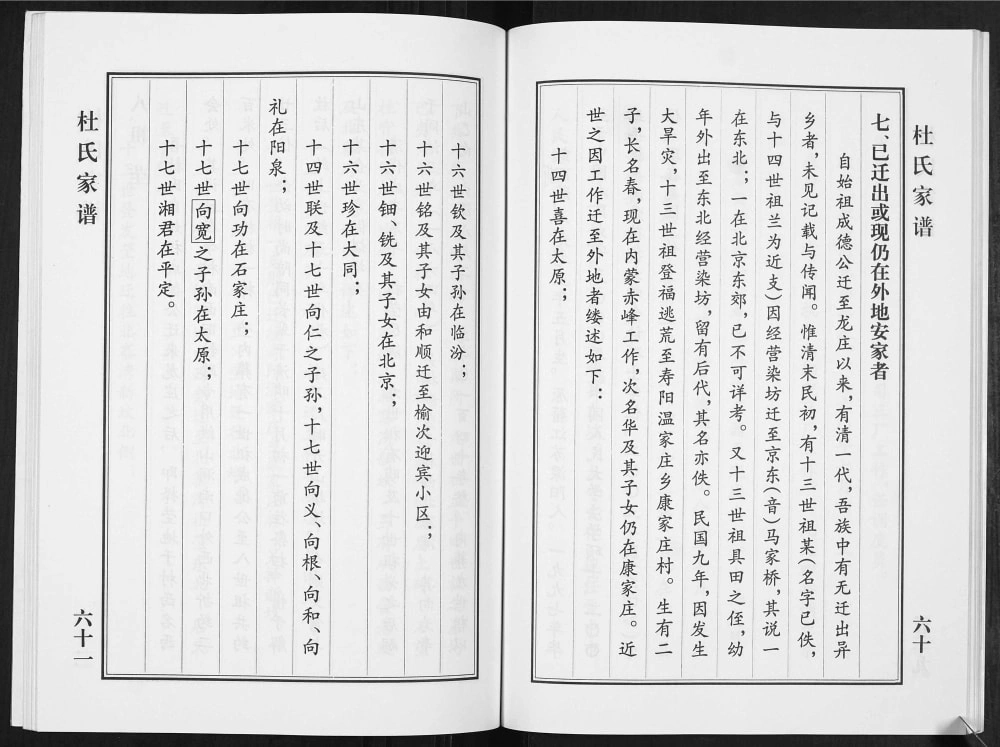 杜氏家谱
七、已迁出或现仍在外地安家者
自始祖成德公迁至龙庄以来，有清一代，吾族中有无迁出异
乡者，未见记载与传闻。惟清末民初，有十三世祖某（名字已佚，
与十四世祖兰为近支）因经营染坊迁至京东（音）马家桥，其说一
在东北；一在北京东郊，已不可详考。又十三世祖具田之侄，幼
年外出至东北经营染坊，留有后代，其名亦佚。民国九年，因发生
大旱灾，十三世祖登福逃荒至寿阳温家庄乡康家庄村。生有二
子，长名春，现在内蒙赤峰工作，次名华及其子女仍在康家庄。近
世之因工作迁至外地者缕述如下：
十四世喜在太原；
六十
十六世钦及其子孙在临汾；
十六世铭及其子女由和顺迁至榆次迎宾小区；
十六世钿、铣及其子女在北京；
十六世珍在大同；
十四世联及十七世向仁之子孙，十七世向义、向根、向和、向
礼在阳泉；
十七世向功在石家庄；
十七世向宽之子孙在太原；
十七世湘君在平定。
杜氏家谱
六十一